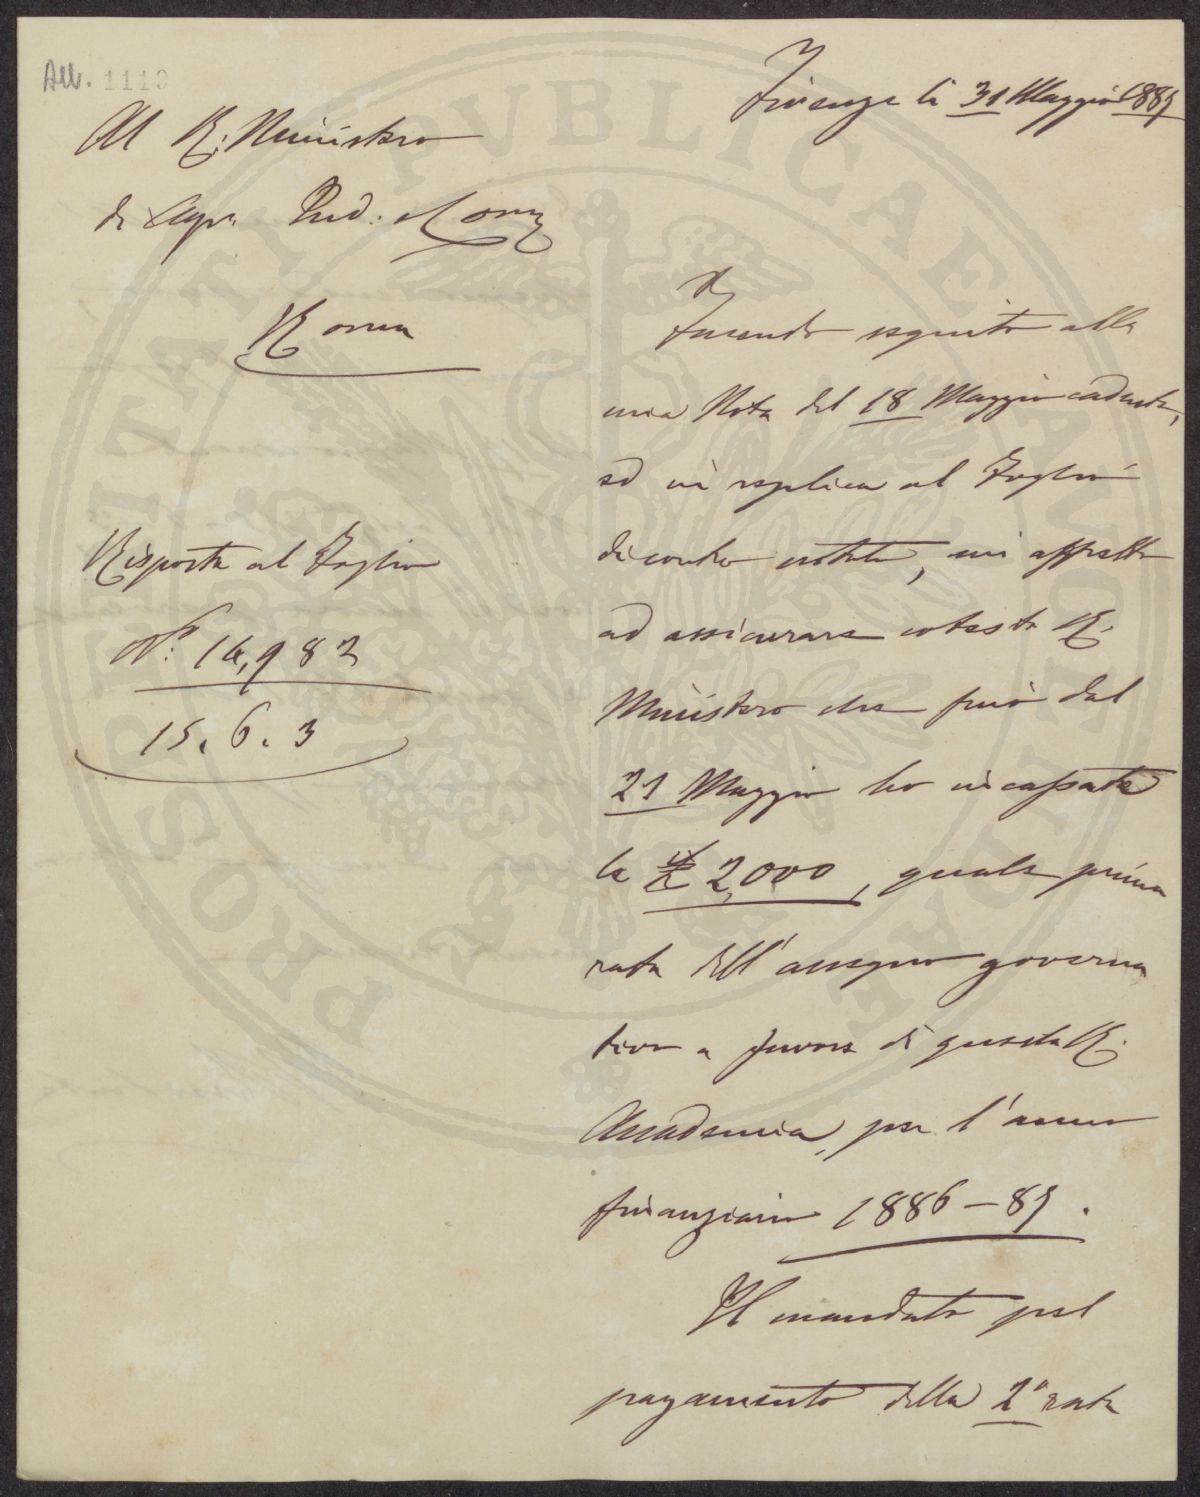 All. 1110
Firenze li 31 Maggio 1887
Al R. Ministero
di Agr. Ind. e Com.
Roma
Facendo seguito alla
mia Nota del 18 Maggio cadente,
ed in replica al Foglio
di contro notato, mi affretto
ad assicurare cotesto R.
Ministero che fino dal
21 Maggio ho incassate
le £ 2,000, quale prima
rata dell'assegno governa
tivo a favore di questa R.
Accademia, per l'anno
finanziario 1886-87.
Il mandato pel
pagamento della 2ª rata
Risposta al Foglio
N.º 14,982
15.6.3
PROSPERITATI PVBLICAE AVGENDAE